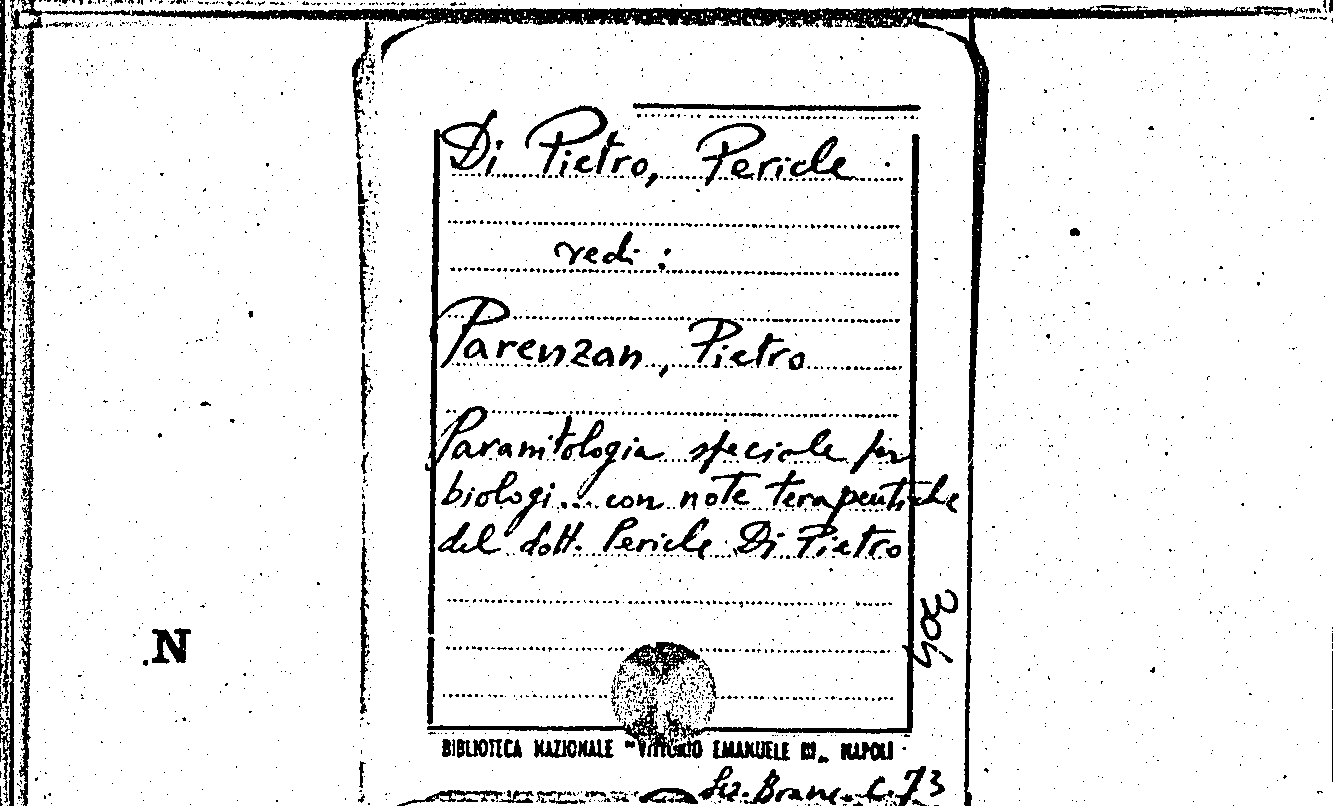 Di Pietro, Pericle
vedi:
Parenzan, Pietro
Parassitologia speciale per
biologi... con note terapeutiche
del dott. Pericle Di Pietro
304
N
BIBLIOTECA NAZIONALE "VITTORIO EMANUELE III" NAPOLI
Sez. Branc. C. 73